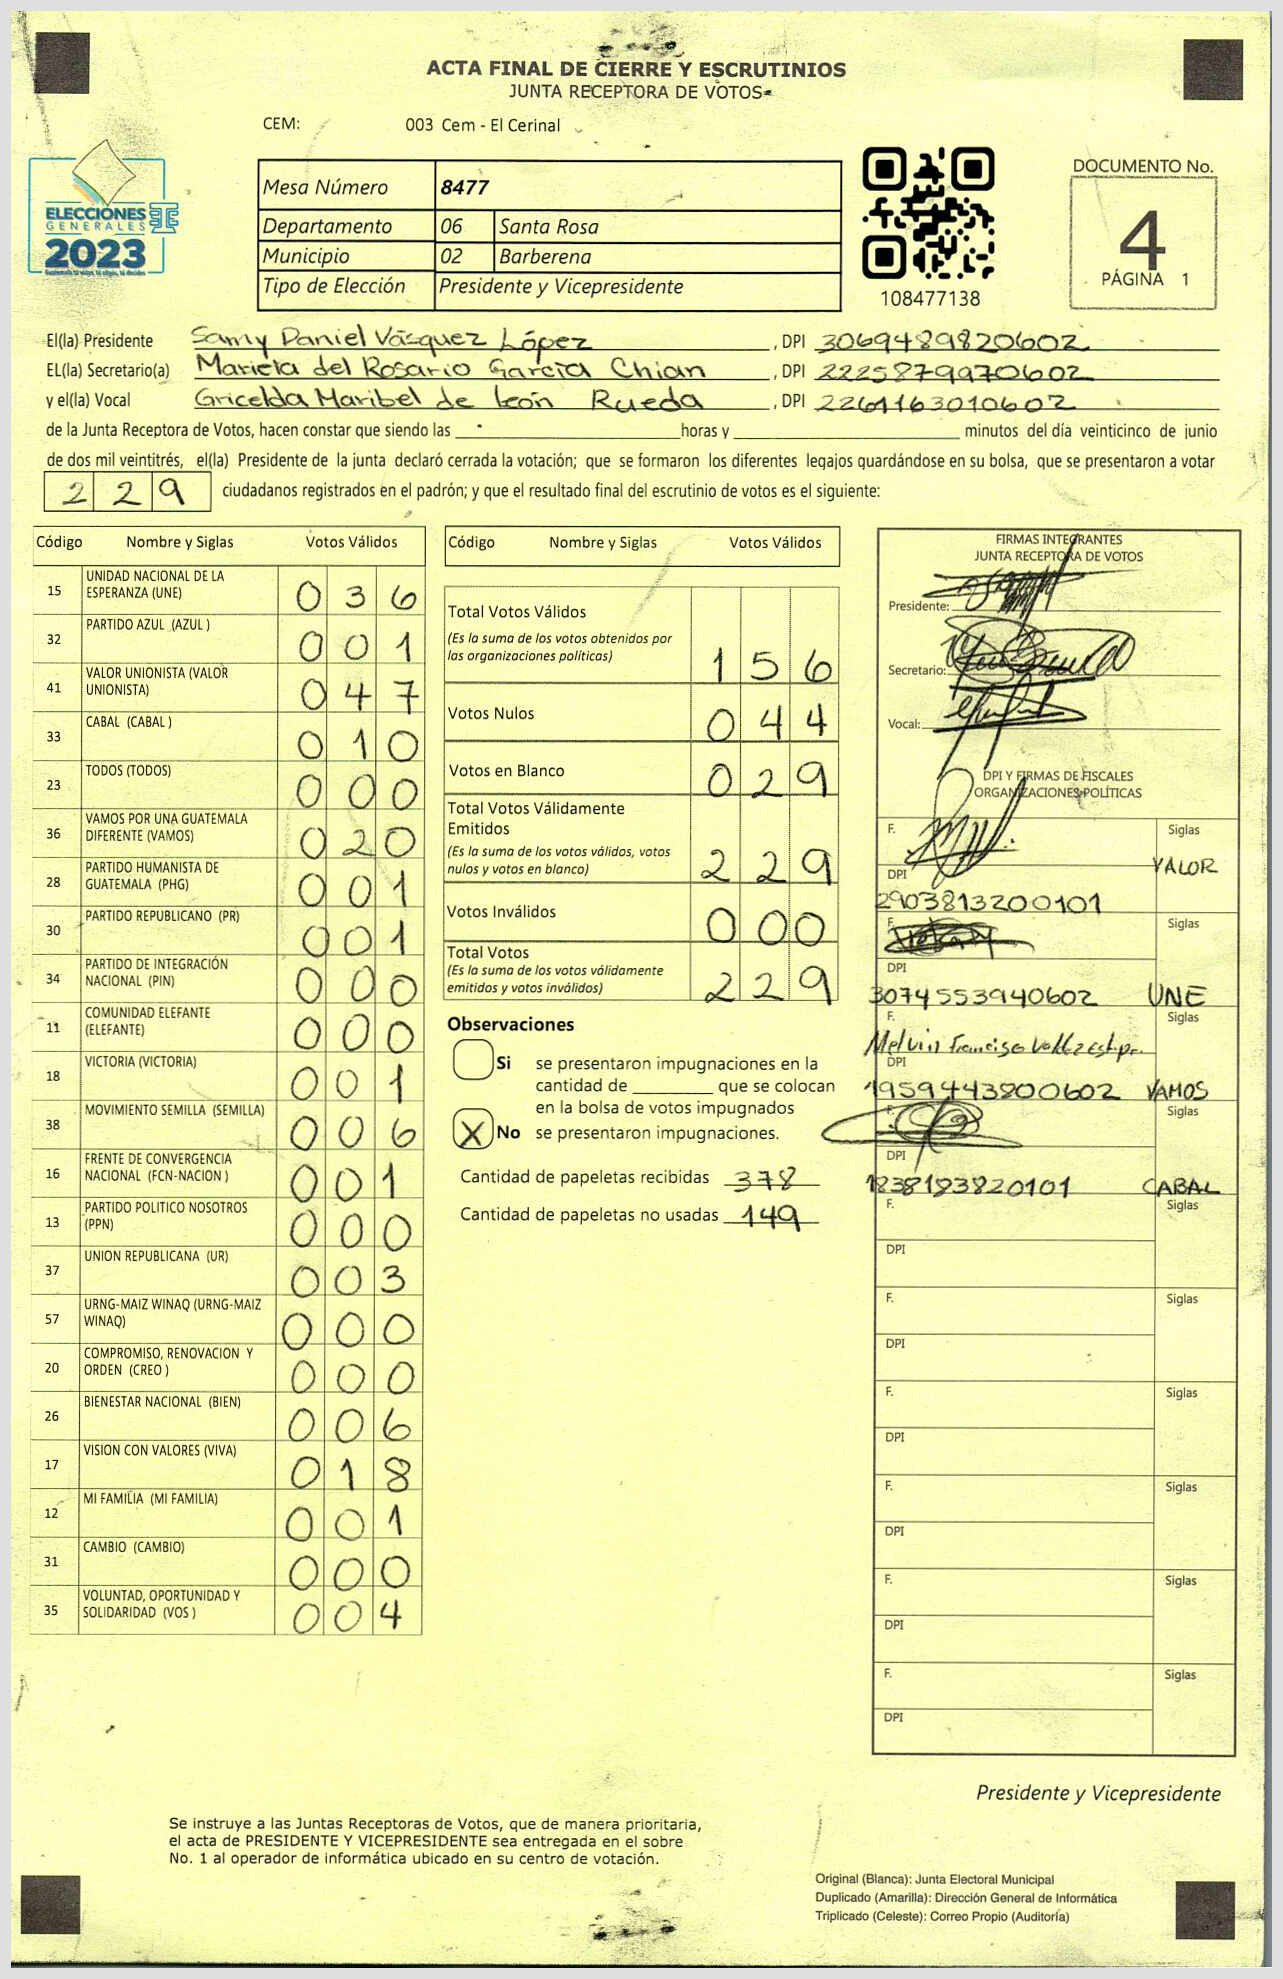 ACTA FINAL DE CIERRE Y ESCRUTINIOS
JUNTA RECEPTORA DE VOTOS
CEM: 003 Cem - El Cerinal
ELECCIONES
GENERALES
2023
Mesa Número 8477
Departamento 06 Santa Rosa
Municipio 02 Barberena
Tipo de Elección Presidente y Vicepresidente
108477138
DOCUMENTO No.
4
PÁGINA 1
El(la) Presidente Samy Daniel Vásquez López , DPI 3069489820602
EL(la) Secretario(a) Mariela del Rosario García Chian , DPI 2225879970602
y el(la) Vocal Gricelda Maribel de León Rueda , DPI 2261163010602
de la Junta Receptora de Votos, hacen constar que siendo las horas y minutos del día veinticinco de junio
de dos mil veintitrés, el(la) Presidente de la junta declaró cerrada la votación; que se formaron los diferentes legajos guardándose en su bolsa, que se presentaron a votar
229 ciudadanos registrados en el padrón; y que el resultado final del escrutinio de votos es el siguiente:
Código Nombre y Siglas Votos Válidos
15 UNIDAD NACIONAL DE LA ESPERANZA (UNE) 036
32 PARTIDO AZUL (AZUL ) 001
41 VALOR UNIONISTA (VALOR UNIONISTA) 047
33 CABAL (CABAL ) 010
23 TODOS (TODOS) 000
36 VAMOS POR UNA GUATEMALA DIFERENTE (VAMOS) 020
28 PARTIDO HUMANISTA DE GUATEMALA (PHG) 001
30 PARTIDO REPUBLICANO (PR) 001
34 PARTIDO DE INTEGRACIÓN NACIONAL (PIN) 000
11 COMUNIDAD ELEFANTE (ELEFANTE) 000
18 VICTORIA (VICTORIA) 001
38 MOVIMIENTO SEMILLA (SEMILLA) 006
16 FRENTE DE CONVERGENCIA NACIONAL (FCN-NACION ) 001
13 PARTIDO POLITICO NOSOTROS (PPN) 000
37 UNION REPUBLICANA (UR) 003
57 URNG-MAIZ WINAQ (URNG-MAIZ WINAQ) 000
20 COMPROMISO, RENOVACION Y ORDEN (CREO ) 000
26 BIENESTAR NACIONAL (BIEN) 006
17 VISION CON VALORES (VIVA) 018
12 MI FAMILIA (MI FAMILIA) 001
31 CAMBIO (CAMBIO) 000
35 VOLUNTAD, OPORTUNIDAD Y SOLIDARIDAD (VOS ) 004
Código Nombre y Siglas Votos Válidos
Total Votos Válidos
(Es la suma de los votos obtenidos por
las organizaciones políticas) 156
Votos Nulos 044
Votos en Blanco 029
Total Votos Válidamente
Emitidos
(Es la suma de los votos válidos, votos
nulos y votos en blanco) 229
Votos Inválidos 000
Total Votos
(Es la suma de los votos válidamente
emitidos y votos inválidos) 229
Observaciones
Si se presentaron impugnaciones en la
cantidad de que se colocan
en la bolsa de votos impugnados
X No se presentaron impugnaciones.
Cantidad de papeletas recibidas 378
Cantidad de papeletas no usadas 149
FIRMAS INTEGRANTES
JUNTA RECEPTORA DE VOTOS
Presidente:
Secretario:
Vocal:
DPI Y FIRMAS DE FISCALES
ORGANIZACIONES POLÍTICAS
F. Siglas
VALOR
DPI
2903813200101
F. Siglas
DPI
3074553940602 UNE
F. Siglas
Melvin
DPI
1959443800602 VAMOS
F. Siglas
DPI
1838193820101 CABAL
F. Siglas
DPI
F. Siglas
DPI
F. Siglas
DPI
F. Siglas
DPI
F. Siglas
DPI
F. Siglas
DPI
Presidente y Vicepresidente
Se instruye a las Juntas Receptoras de Votos, que de manera prioritaria,
el acta de PRESIDENTE Y VICEPRESIDENTE sea entregada en el sobre
No. 1 al operador de informática ubicado en su centro de votación.
Original (Blanca): Junta Electoral Municipal
Duplicado (Amarilla): Dirección General de Informática
Triplicado (Celeste): Correo Propio (Auditoría)